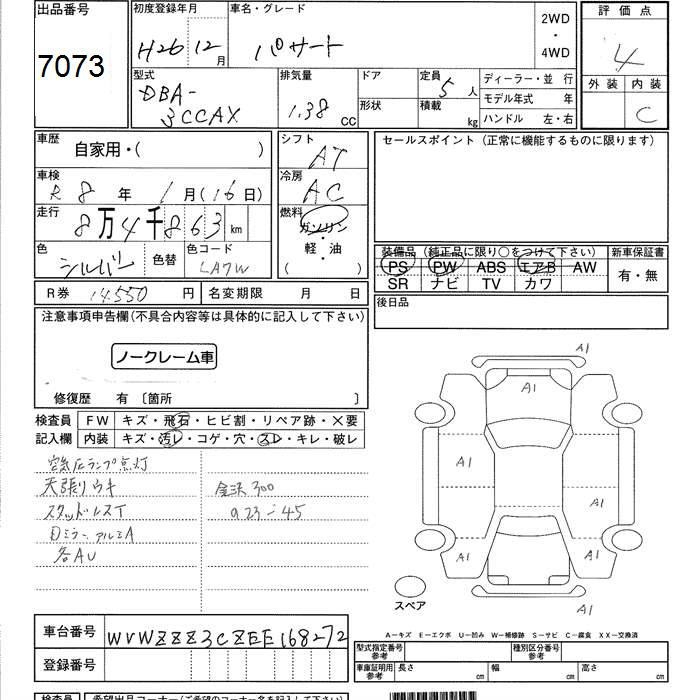 出品番号
7073
初度登録年月
H26 12月
車名・グレード
パサート
2WD
・
4WD
評価点
4
外装 内装
C
型式
DBA-
3CCAX
排気量
1.38 CC
ドア
形状
定員 5人
積載 kg
ディーラー・並 行
モデル年式 年
ハンドル 左・右
車歴
自家用・( )
車検
R 8 年 1月(16日)
走行
8万4千863 km
色
シルバー
色替
色コード
LA7W
シフト
AT
冷房
AC
燃料
ガソリン
・
軽・油
( )
セールスポイント (正常に機能するものに限ります)
装備品 (純正品に限り○をつけて下さい)
PS PW ABS エアB AW
SR ナビ TV カワ
新車保証書
有・無
後日品
R券 14,550 円
名変期限 月 日
注意事項申告欄(不具合内容等は具体的に記入して下さい)
ノークレーム車
修復歴 有 〔箇所 〕
検査員
記入欄
FW キズ・飛石・ヒビ割・リペア跡・×要
内装 キズ・汚レ・コゲ・穴・スレ・キレ・破レ
空気圧ランプ点灯
天張りウキ
スタッドレスT
Dミラー アルミA
各AU
金沢300
a23-45
A1
A1
A1
A1
A1
A1
A1
A1
スペア
A-キズ E-エクボ U-凹み W-補修跡 S-サビ C-腐食 XX-交換済
車台番号
WVWZZZ3CZEE168272
登録番号
型式指定番号
参考
種別区分番号
参考
車庫証明用
参考
長さ cm
幅 cm
高さ cm
検査員
希望出品コーナー(ご希望のコーナー名を記入下さい)